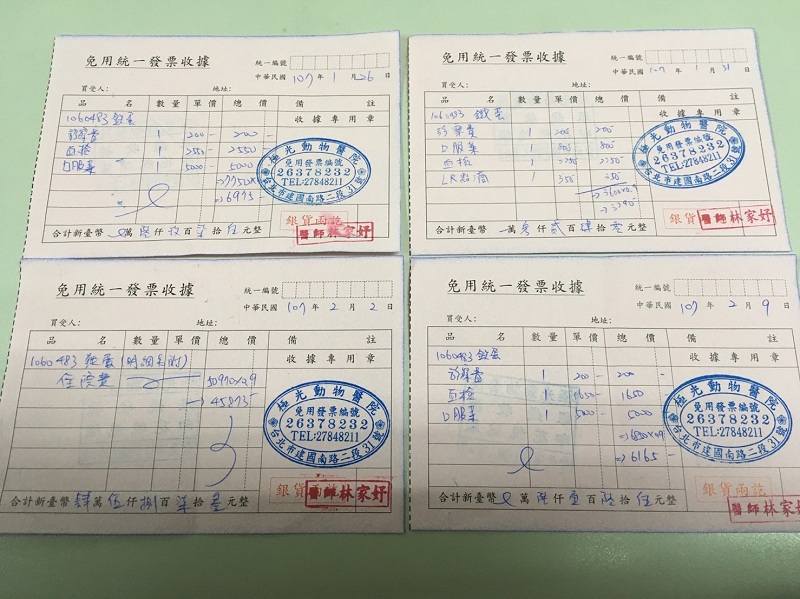 免用統一發票收據
統一編號
中華民國 107 年 1 月 26 日
買受人： 地址：
品 名 數量 單價 總 價 備 註
1060483 鐵蛋 收據專用章
診察費 1 200- 200-
血檢 1 2550 2550-
口服藥 1 5000- 5000
極光動物醫院
免用發票編號
26378232
TEL:27848211
台北市建國南路二段31號
→6975-
銀貨兩訖
醫師林家妤
合計新臺幣 萬 陸 仟 玖 百 柒 拾 伍 元整
免用統一發票收據
統一編號
中華民國 107 年 1 月 31 日
買受人： 地址：
品 名 數量 單價 總 價 備 註
1060483 鐵蛋 收據專用章
診察費 1 200 200-
口服藥 1 800 800-
血檢 1 2250 2250-
1 350 350-
極光動物醫院
免用發票編號
26378232
TEL:27848211
台北市建國南路二段31號
銀貨
醫師林家妤
合計新臺幣 萬 仟 貳 百 肆 拾 元整
免用統一發票收據
統一編號
中華民國 107 年 2 月 2 日
買受人： 地址：
品 名 數量 單價 總 價 備 註
1060483 鐵蛋 (明細另附) 收據專用章
住院費 50970×0.9
→45873-
極光動物醫院
免用發票編號
26378232
TEL:27848211
台北市建國南路二段31號
銀貨兩訖
醫師林家妤
合計新臺幣 肆 萬 伍 仟 捌 百 柒 拾 參 元整
免用統一發票收據
統一編號
中華民國 107 年 2 月 9 日
買受人： 地址：
品 名 數量 單價 總 價 備 註
1060483 鐵蛋 收據專用章
診察費 1 200- 200-
血檢 1 1650- 1650
口服藥 1 5000- 5000
→6850×0.9
→6165-
極光動物醫院
免用發票編號
26378232
TEL:27848211
台北市建國南路二段31號
銀貨兩訖
醫師林家妤
合計新臺幣 萬 陸 仟 壹 百 陸 拾 伍 元整